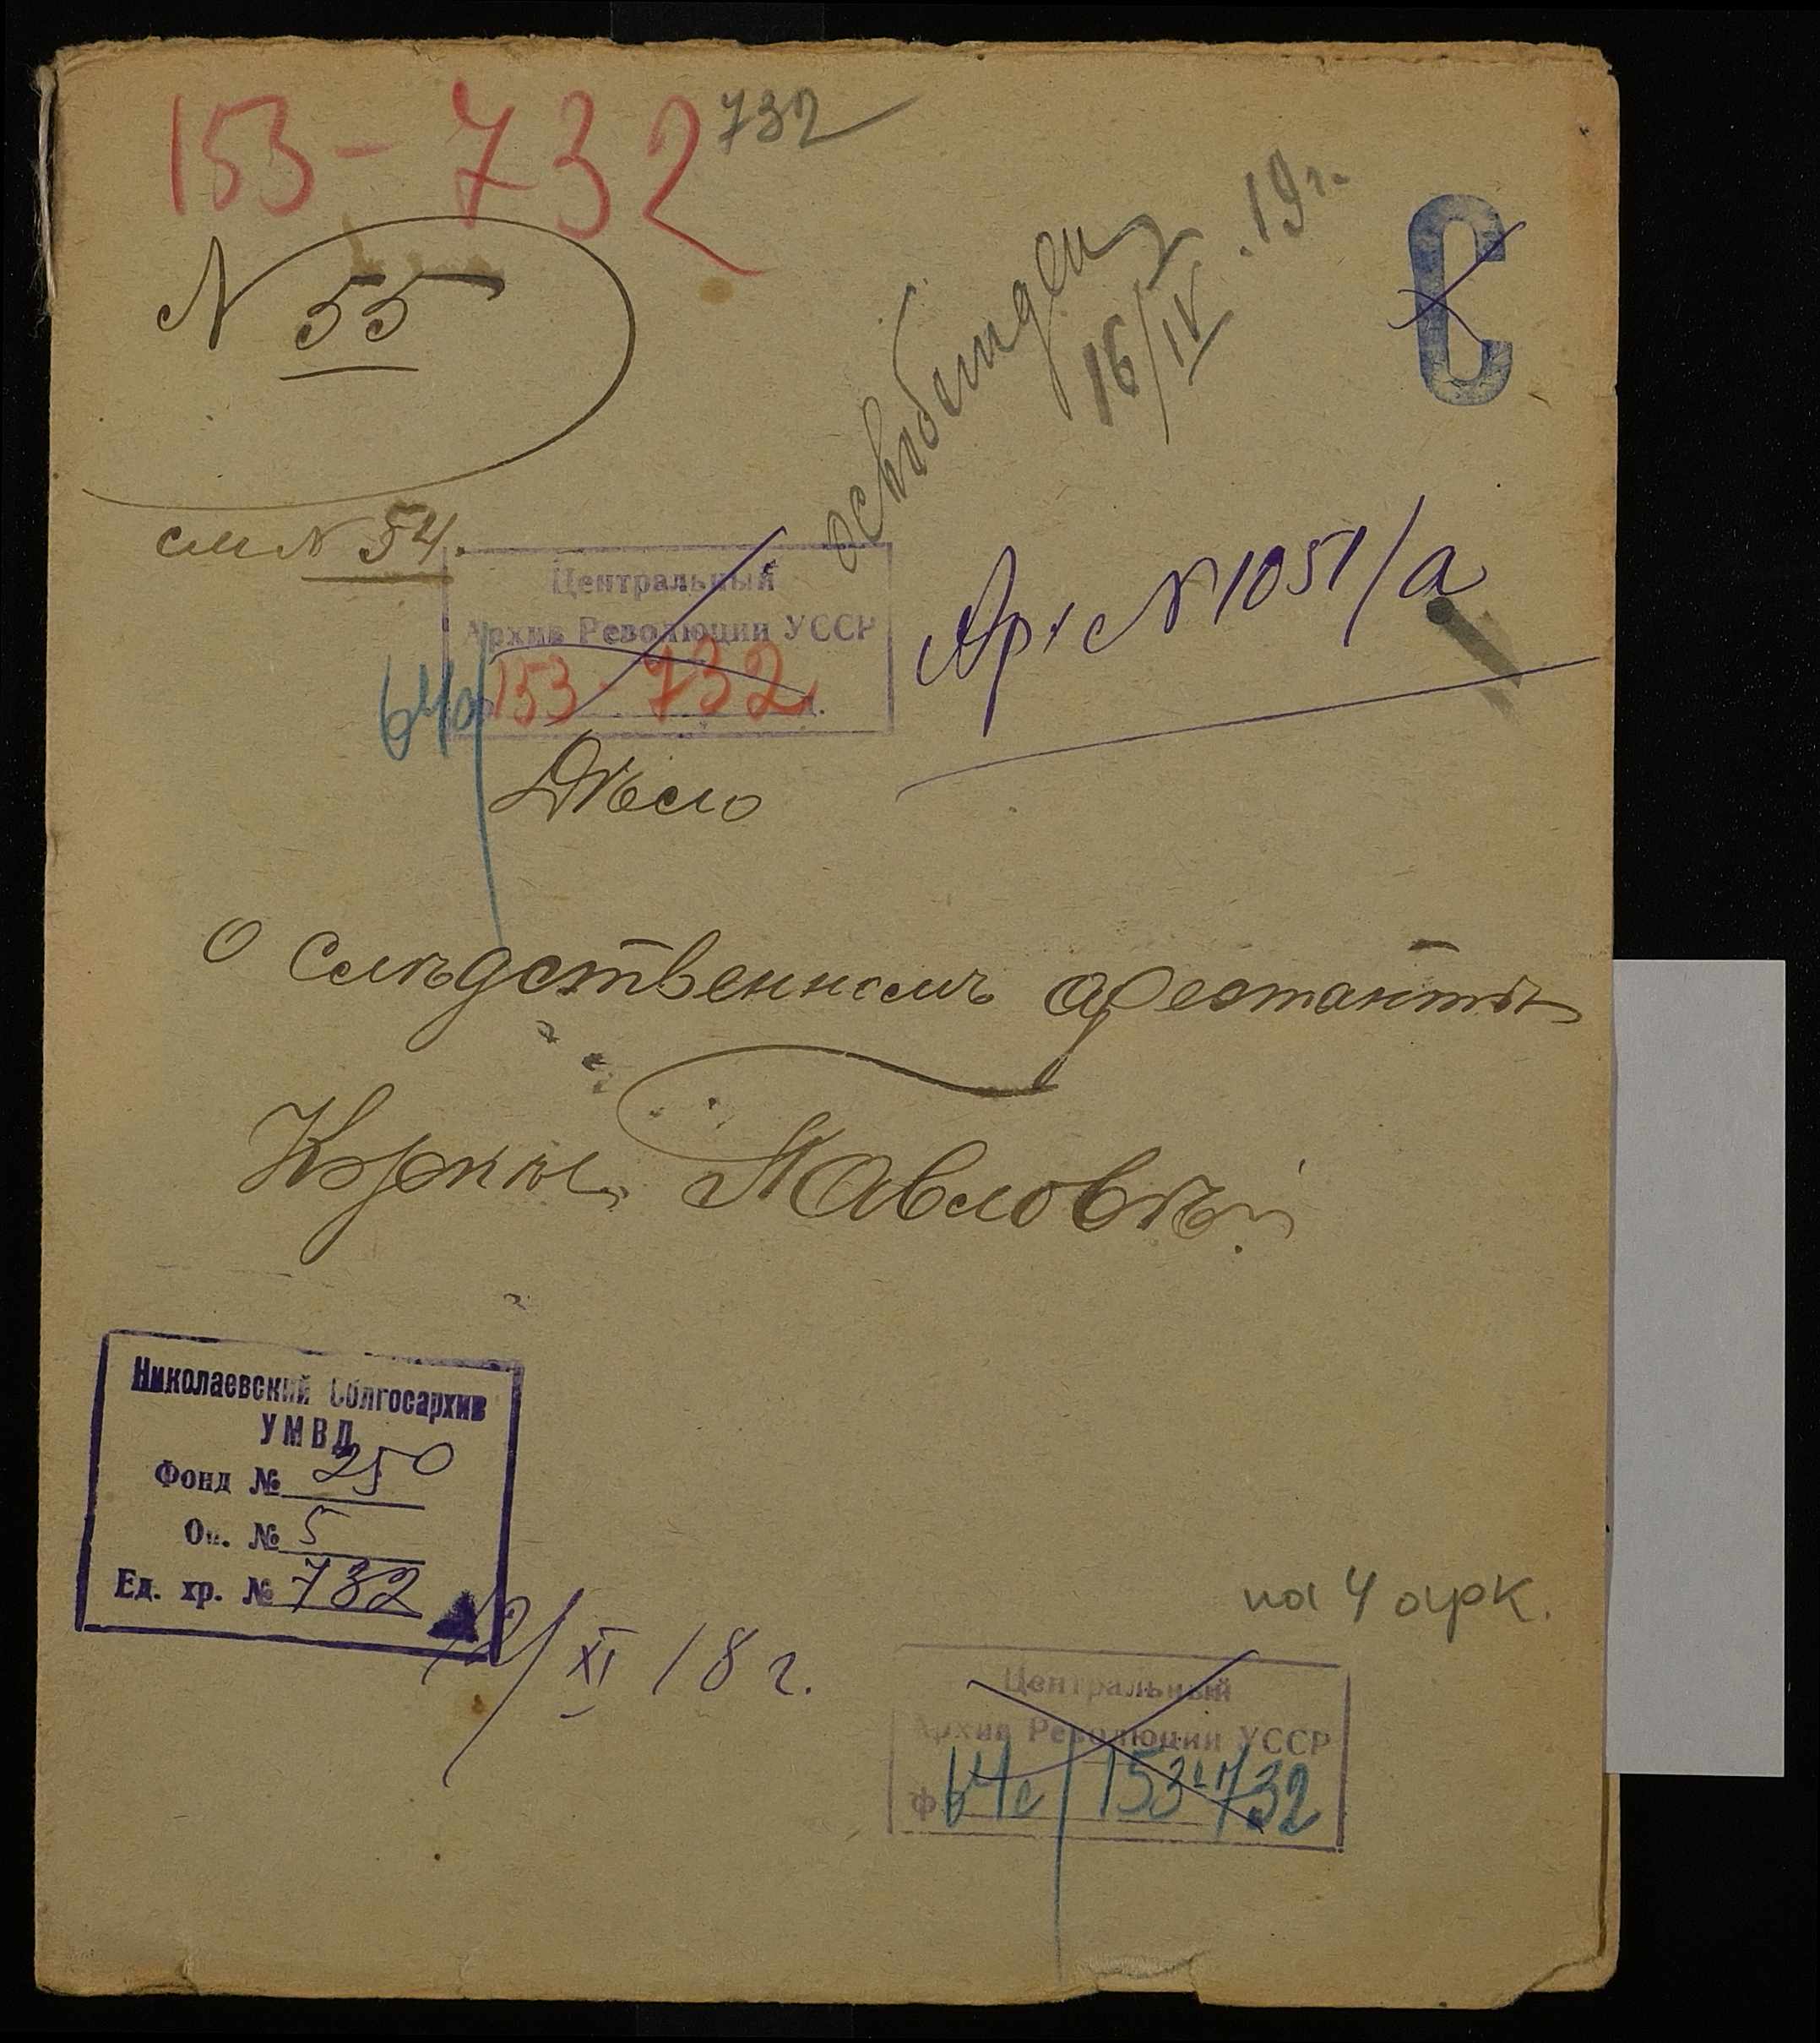 153-732 732
N 55
С
освобожден
16/IV.19г.
см N 54.
Центральный
Архив Революции УССР
64с/153-732
Арх N1051/а
Дѣло
о Слѣдственномъ арестантѣ
Павловѣ.
Николаевский Облгосархив
УМВД
Фонд № 250
Оп. № 5
Ед. хр. № 732
12/XI 18 г.
на 4 арк.
Центральный
Архив Революции УССР
ф 64с/153-732